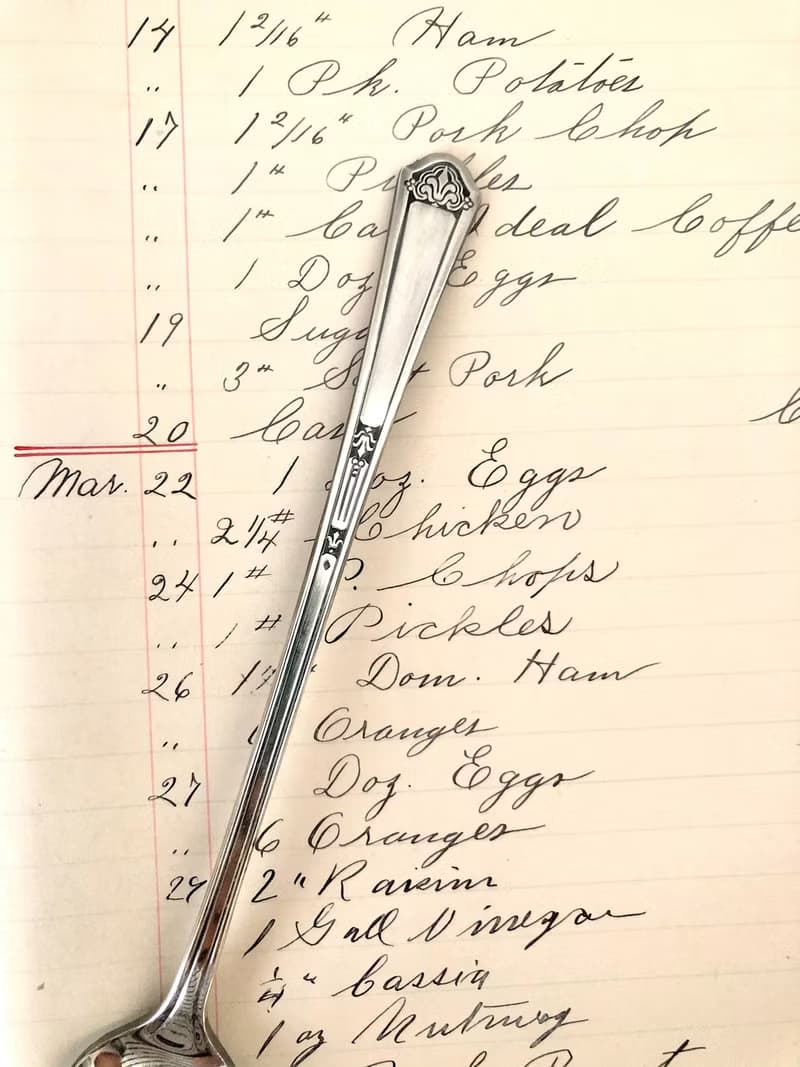 14 1 2/16 " Ham
" 1 Pk. Potatoes
17 1 2/16 " Pork Chop
" 1 " 
" 1 " Ideal Coffe
" 1 Doz Eggs
19
" 3 " Pork
20
Mar. 22 1 oz. Eggs
" 2 1/4 # Chicken
24 1 # P. Chops
" 1 # Pickles
26 1 Dom. Ham
" Oranges
27 Doz. Eggs
" 6 Oranges
29 2 " Raisins
1 Gall Vinegar
1/4 " Cassia
1 oz Nutmeg